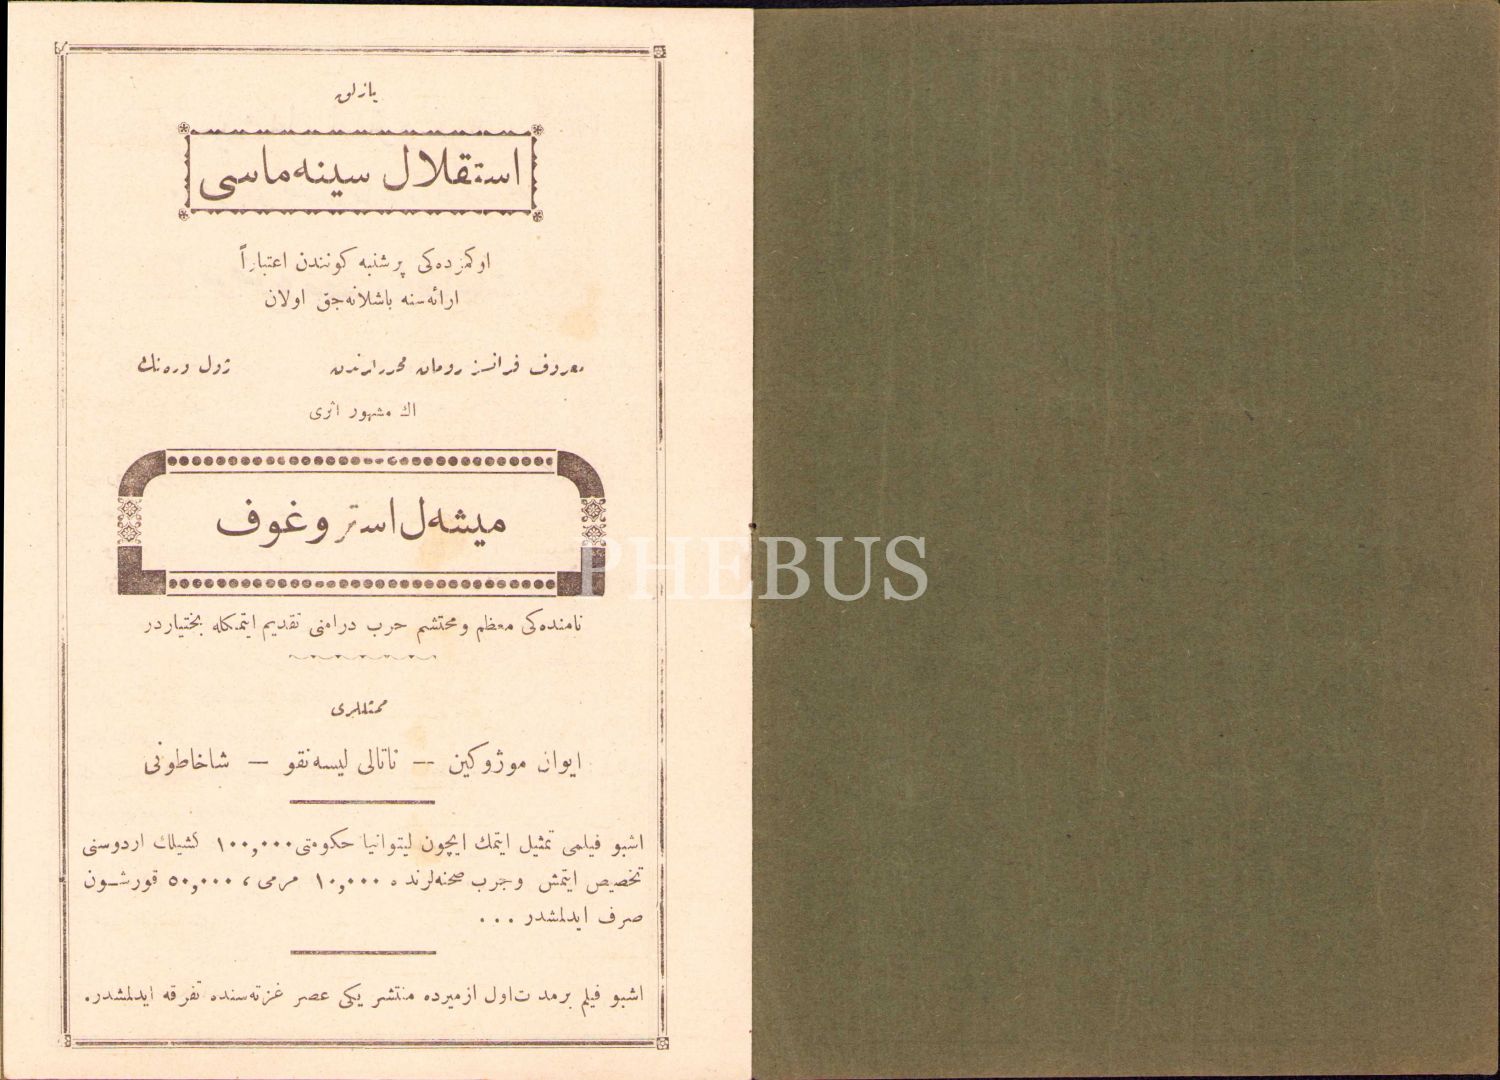 یازلق
استقلال سینه‌ماسی
اوکمزده‌کی پرشنبه کونندن اعتباراً
ارائه‌سنه باشلانه‌جق اولان
معروف فرانسز رومان محررلرندن ژول ورەنك
اك مشهور اثری
میشه‌ل استروغوف
نامنده‌کی معظم و محتشم حرب درامنی تقدیم ایتمکله بختیاردر
ممثللری
ایوان موژوکین — ناتالی لیسه‌نقو — شاخاطونی
اشبو فیلمی تمثیل ایتمك ایچون لیتوانیا حکومتی ۱۰۰,۰۰۰ کشیلك اردوسنی
تخصیص ایتمش وحرب صحنه‌لرنده ۱۰,۰۰۰ مرمی ، ۵۰,۰۰۰ قورشــون
صرف ایدلمشدر ...
اشبو فیلم برمدت‌اول ازمیرده منتشر یکی عصر غزته‌سنده تفرقه ایدلمشدر.
PHEBUS